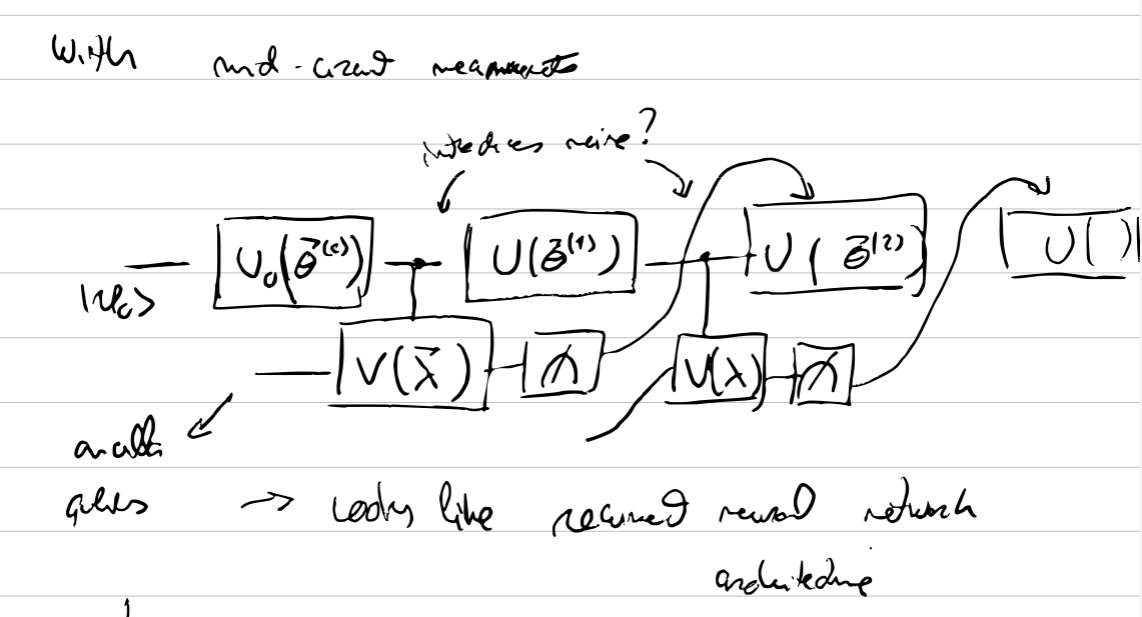 With mid-circuit measurements
introduces noise?
|ψ₀> U₀(θ⃗⁽⁰⁾) U(θ⃗⁽¹⁾) U( θ⃗⁽²⁾) U( )
V(λ⃗) V(λ)
ancilla
qubits → looks like recurrent neural network
architecture